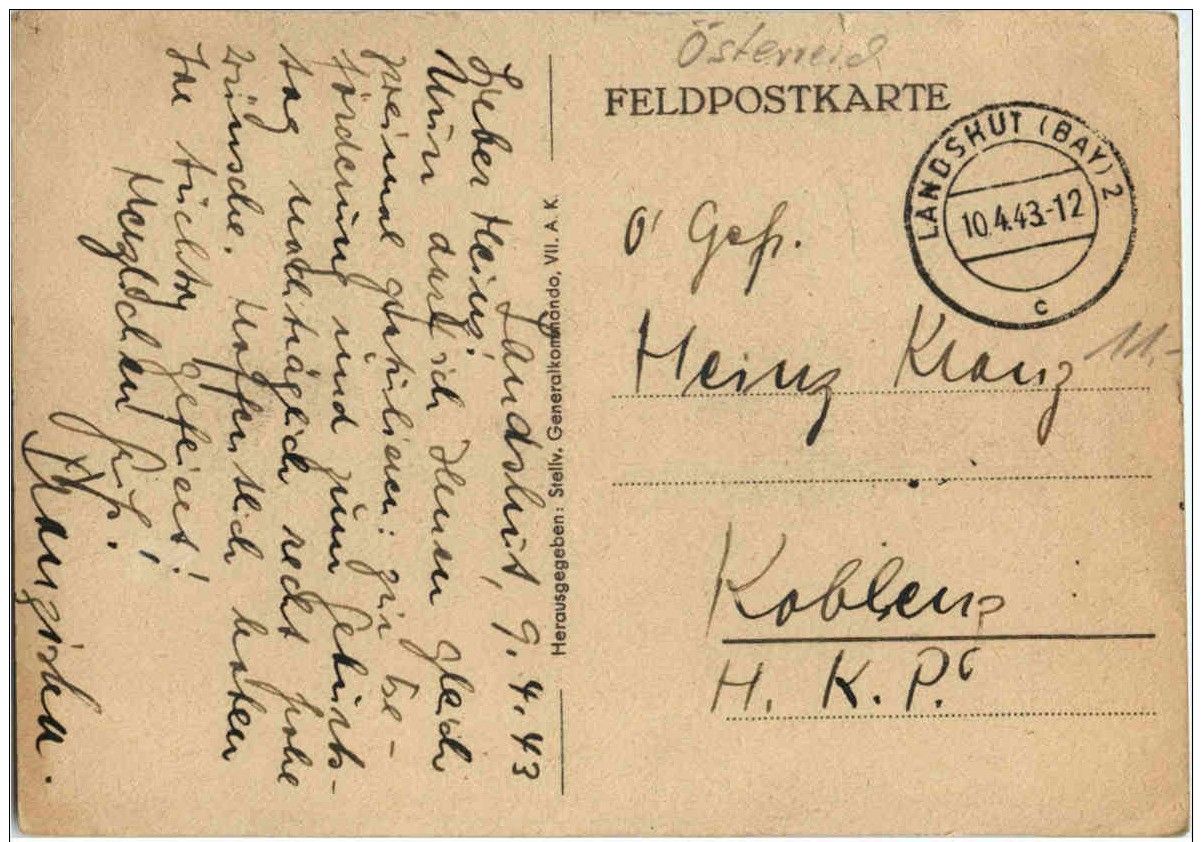 Österreich
FELDPOSTKARTE
LANDSHUT (BAY) 2
10.4.43-12
c
O' Gefr.
Heinz Kranz
11.-
Koblenz
H. K. P.
Herausgegeben: Stellv. Generalkommando, VII. A. K.
Landshut, 9.4.43
Lieber Heinz!
Nun darf ich Ihnen gleich
zweimal gratulieren: zur Be-
förderung und zum Geburts-
tag nachträglich recht frohe
Wünsche. Hoffentlich haben
Sie tüchtig gefeiert!
Herzlichen Gruß!